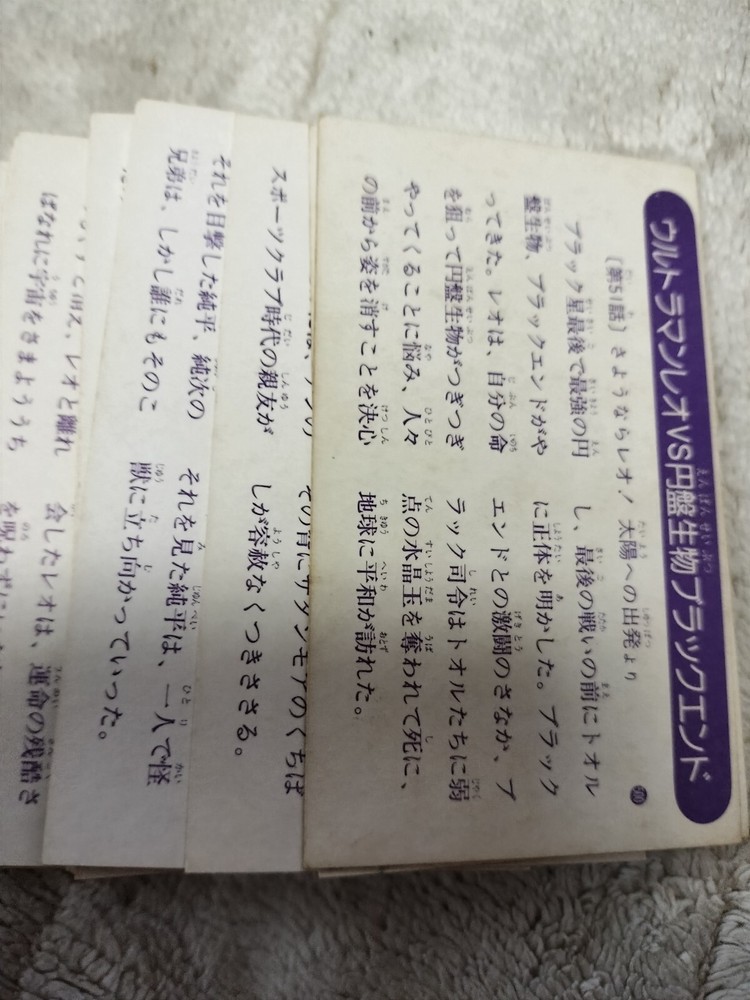 ウルトラマンレオVS円盤生物ブラックエンド
〔第51話〕さようならレオ！太陽への出発より
ブラック星最後で最強の円
盤生物、ブラックエンドがや
ってきた。レオは、自分の命
を狙って円盤生物がつぎつぎ
やってくることに悩み、人々
の前から姿を消すことを決心
し、最後の戦いの前にトオル
に正体を明かした。ブラック
エンドとの激闘のさなか、ブ
ラック司令はトオルたちに弱
点の水晶玉を奪われて死に、
地球に平和が訪れた。
スポーツクラブ時代の親友が
その背にサタンモアのくちば
しが容赦なくつきささる。
それを目撃した純平、純次の
兄弟は、しかし誰にもそのこ
それを見た純平は、一人で怪
獣に立ち向かっていった。
レオと離れ
ばなれに宇宙をさまよううち
会したレオは、運命の残酷さ
を呪わずに